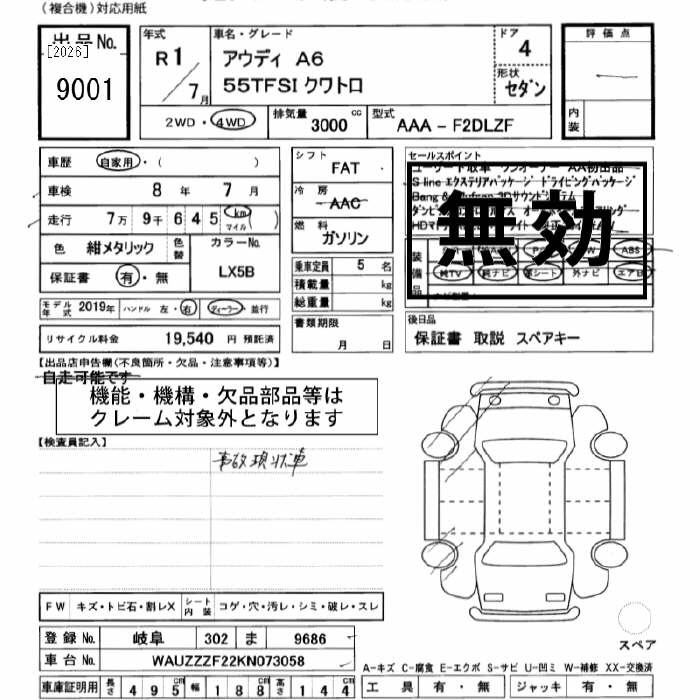 (複合機)対応用紙
出品No.
[2026]
9001
年式
R1
7月
車名・グレード
アウディ A6
55TFSI クワトロ
ドア
4
形状
セダン
評価点
内装
2WD・4WD
排気量
3000 cc
型式
AAA - F2DLZF
車歴 自家用・( )
車検 8年 7月
走行 7万 9千 6 4 5 km マイル
色 紺メタリック 色替
カラーNo.
LX5B
保証書 有・無
モデル年式 2019年 ハンドル 左・右 ディーラー・並行
リサイクル料金 19,540 円 預託済
シフト
FAT
冷房
AAC
燃料
ガソリン
乗車定員 5 名
積載量 kg
総重量 kg
書類期限
月 日
セールスポイント
S line エクステリアパッケージ ドライビングパッケージ
無効
装備品
ABS
純TV 純ナビ 革シート 外ナビ エアB
後日品
保証書 取説 スペアキー
【出品店申告欄(不良箇所・欠品・注意事項等)】
自走可能です
機能・機構・欠品部品等は
クレーム対象外となります
【検査員記入】
事故現状車
FW キズ・トビ石・割レX
シート内装 コゲ・穴・汚レ・シミ・破レ・スレ
登録No. 岐阜 302 ま 9686
車台No. WAUZZZF22KN073058
車庫証明用 長さ 495 cm 幅 188 cm 高さ 144 cm
スペア
A-キズ C-腐食 E-エクボ S-サビ U-凹ミ W-補修 XX-交換済
工具 有・無 ジャッキ 有・無